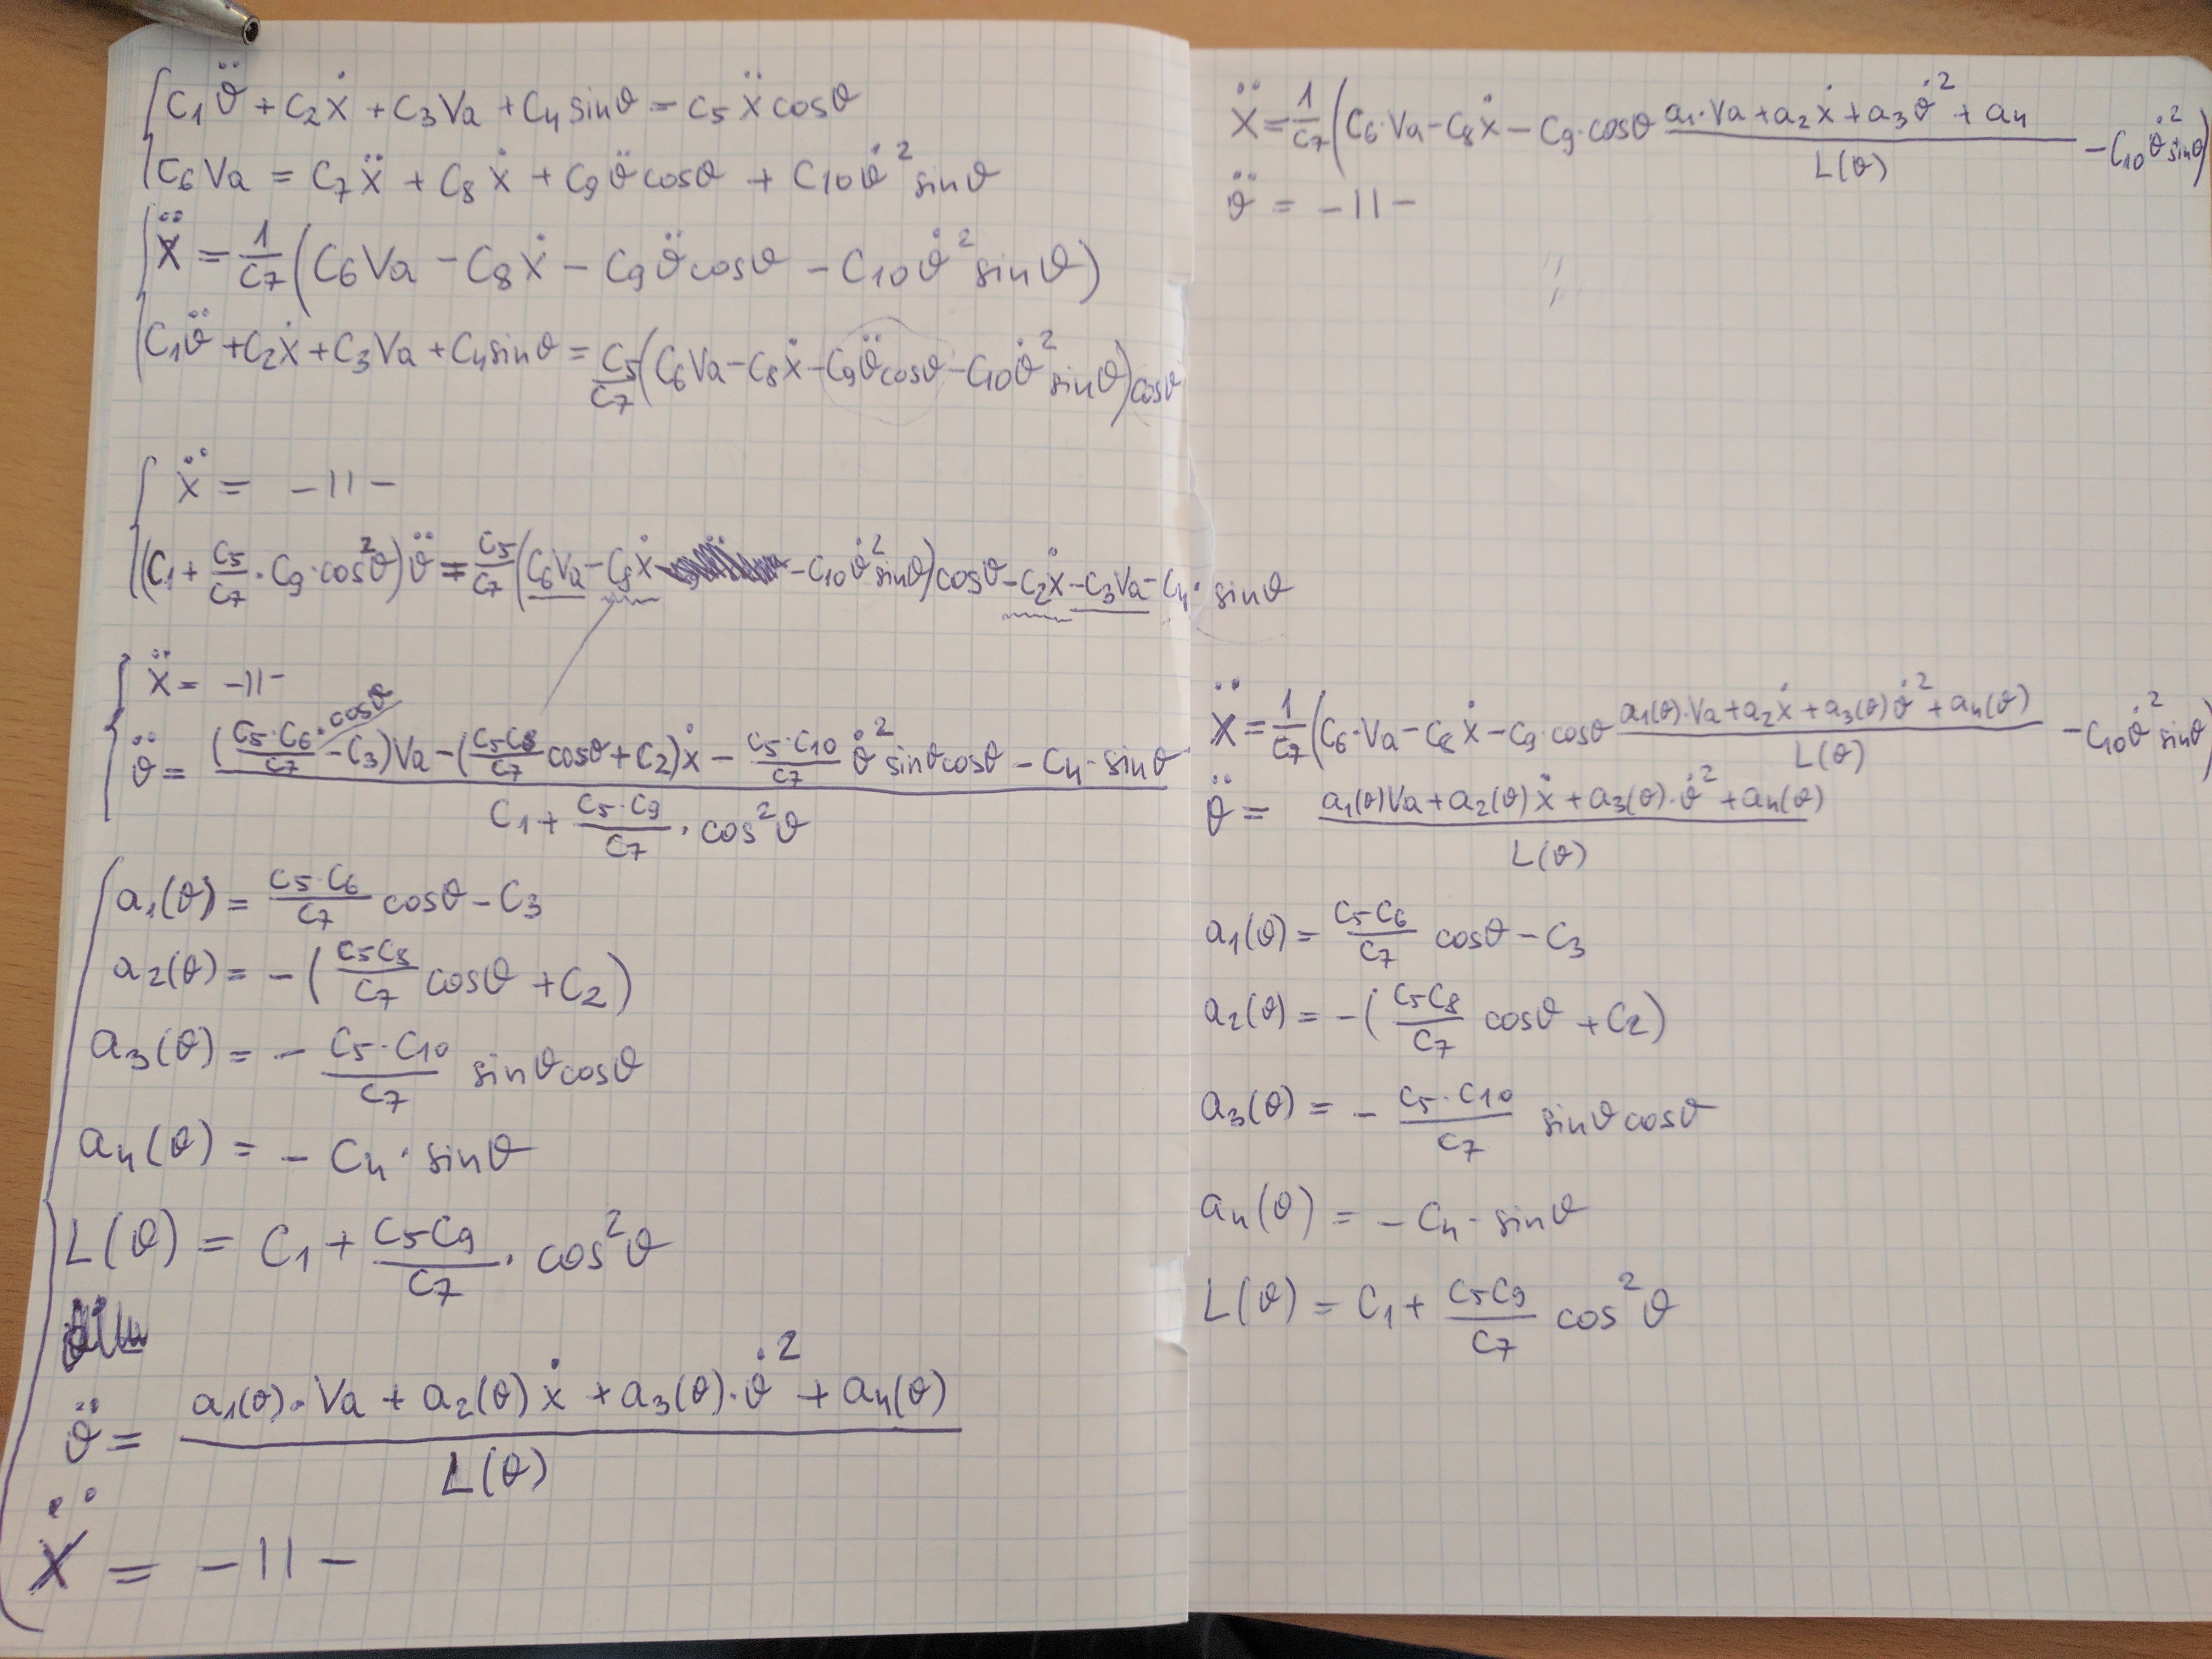 C₁ϑ̈ + C₂ẋ + C₃Va + C₄sinϑ = C₅ẍcosϑ
C₆Va = C₇ẍ + C₈ẋ + C₉ϑ̈cosϑ + C₁₀ϑ̇²sinϑ
ẍ = 1/C₇ (C₆Va - C₈ẋ - C₉ϑ̈cosϑ - C₁₀ϑ̇²sinϑ)
C₁ϑ̈ + C₂ẋ + C₃Va + C₄sinϑ = C₅/C₇ (C₆Va - C₈ẋ - C₉ϑ̈cosϑ - C₁₀ϑ̇²sinϑ)cosϑ
ẍ = -11-
(C₁ + C₅/C₇ · C₉ · cos²ϑ)ϑ̈ = C₅/C₇ (C₆Va - C₈ẋ - C₁₀ϑ̇²sinϑ)cosϑ - C₂ẋ - C₃Va - C₄· sinϑ
ẍ = -11-
ϑ̈ = ((C₅·C₆/C₇ · cosϑ - C₃)Va - (C₅C₈/C₇ cosϑ + C₂)ẋ - C₅·C₁₀/C₇ ϑ̇²sinϑcosϑ - C₄· sinϑ) / (C₁ + C₅·C₉/C₇ · cos²ϑ)
a₁(ϑ) = C₅·C₆/C₇ cosϑ - C₃
a₂(ϑ) = - (C₅C₈/C₇ cosϑ + C₂)
a₃(ϑ) = - C₅·C₁₀/C₇ sinϑcosϑ
a₄(ϑ) = - C₄· sinϑ
L(ϑ) = C₁ + C₅C₉/C₇ · cos²ϑ
ϑ̈ = (a₁(ϑ)·Va + a₂(ϑ)ẋ + a₃(ϑ)·ϑ̇² + a₄(ϑ)) / L(ϑ)
ẍ = -11-
ẍ = 1/C₇ (C₆·Va - C₈ẋ - C₉·cosϑ (a₁·Va + a₂ẋ + a₃ϑ̇² + a₄) / L(ϑ) - C₁₀ϑ̇²sinϑ)
ϑ̈ = -11-
ẍ = 1/C₇ (C₆·Va - C₈ẋ - C₉·cosϑ (a₁(ϑ)·Va + a₂ẋ + a₃(ϑ)ϑ̇² + a₄(ϑ)) / L(ϑ) - C₁₀ϑ̇²sinϑ)
ϑ̈ = (a₁(ϑ)Va + a₂(ϑ)ẋ + a₃(ϑ)·ϑ̇² + a₄(ϑ)) / L(ϑ)
a₁(ϑ) = C₅C₆/C₇ cosϑ - C₃
a₂(ϑ) = - (C₅C₈/C₇ cosϑ + C₂)
a₃(ϑ) = - C₅·C₁₀/C₇ sinϑcosϑ
a₄(ϑ) = - C₄· sinϑ
L(ϑ) = C₁ + C₅C₉/C₇ cos²ϑ